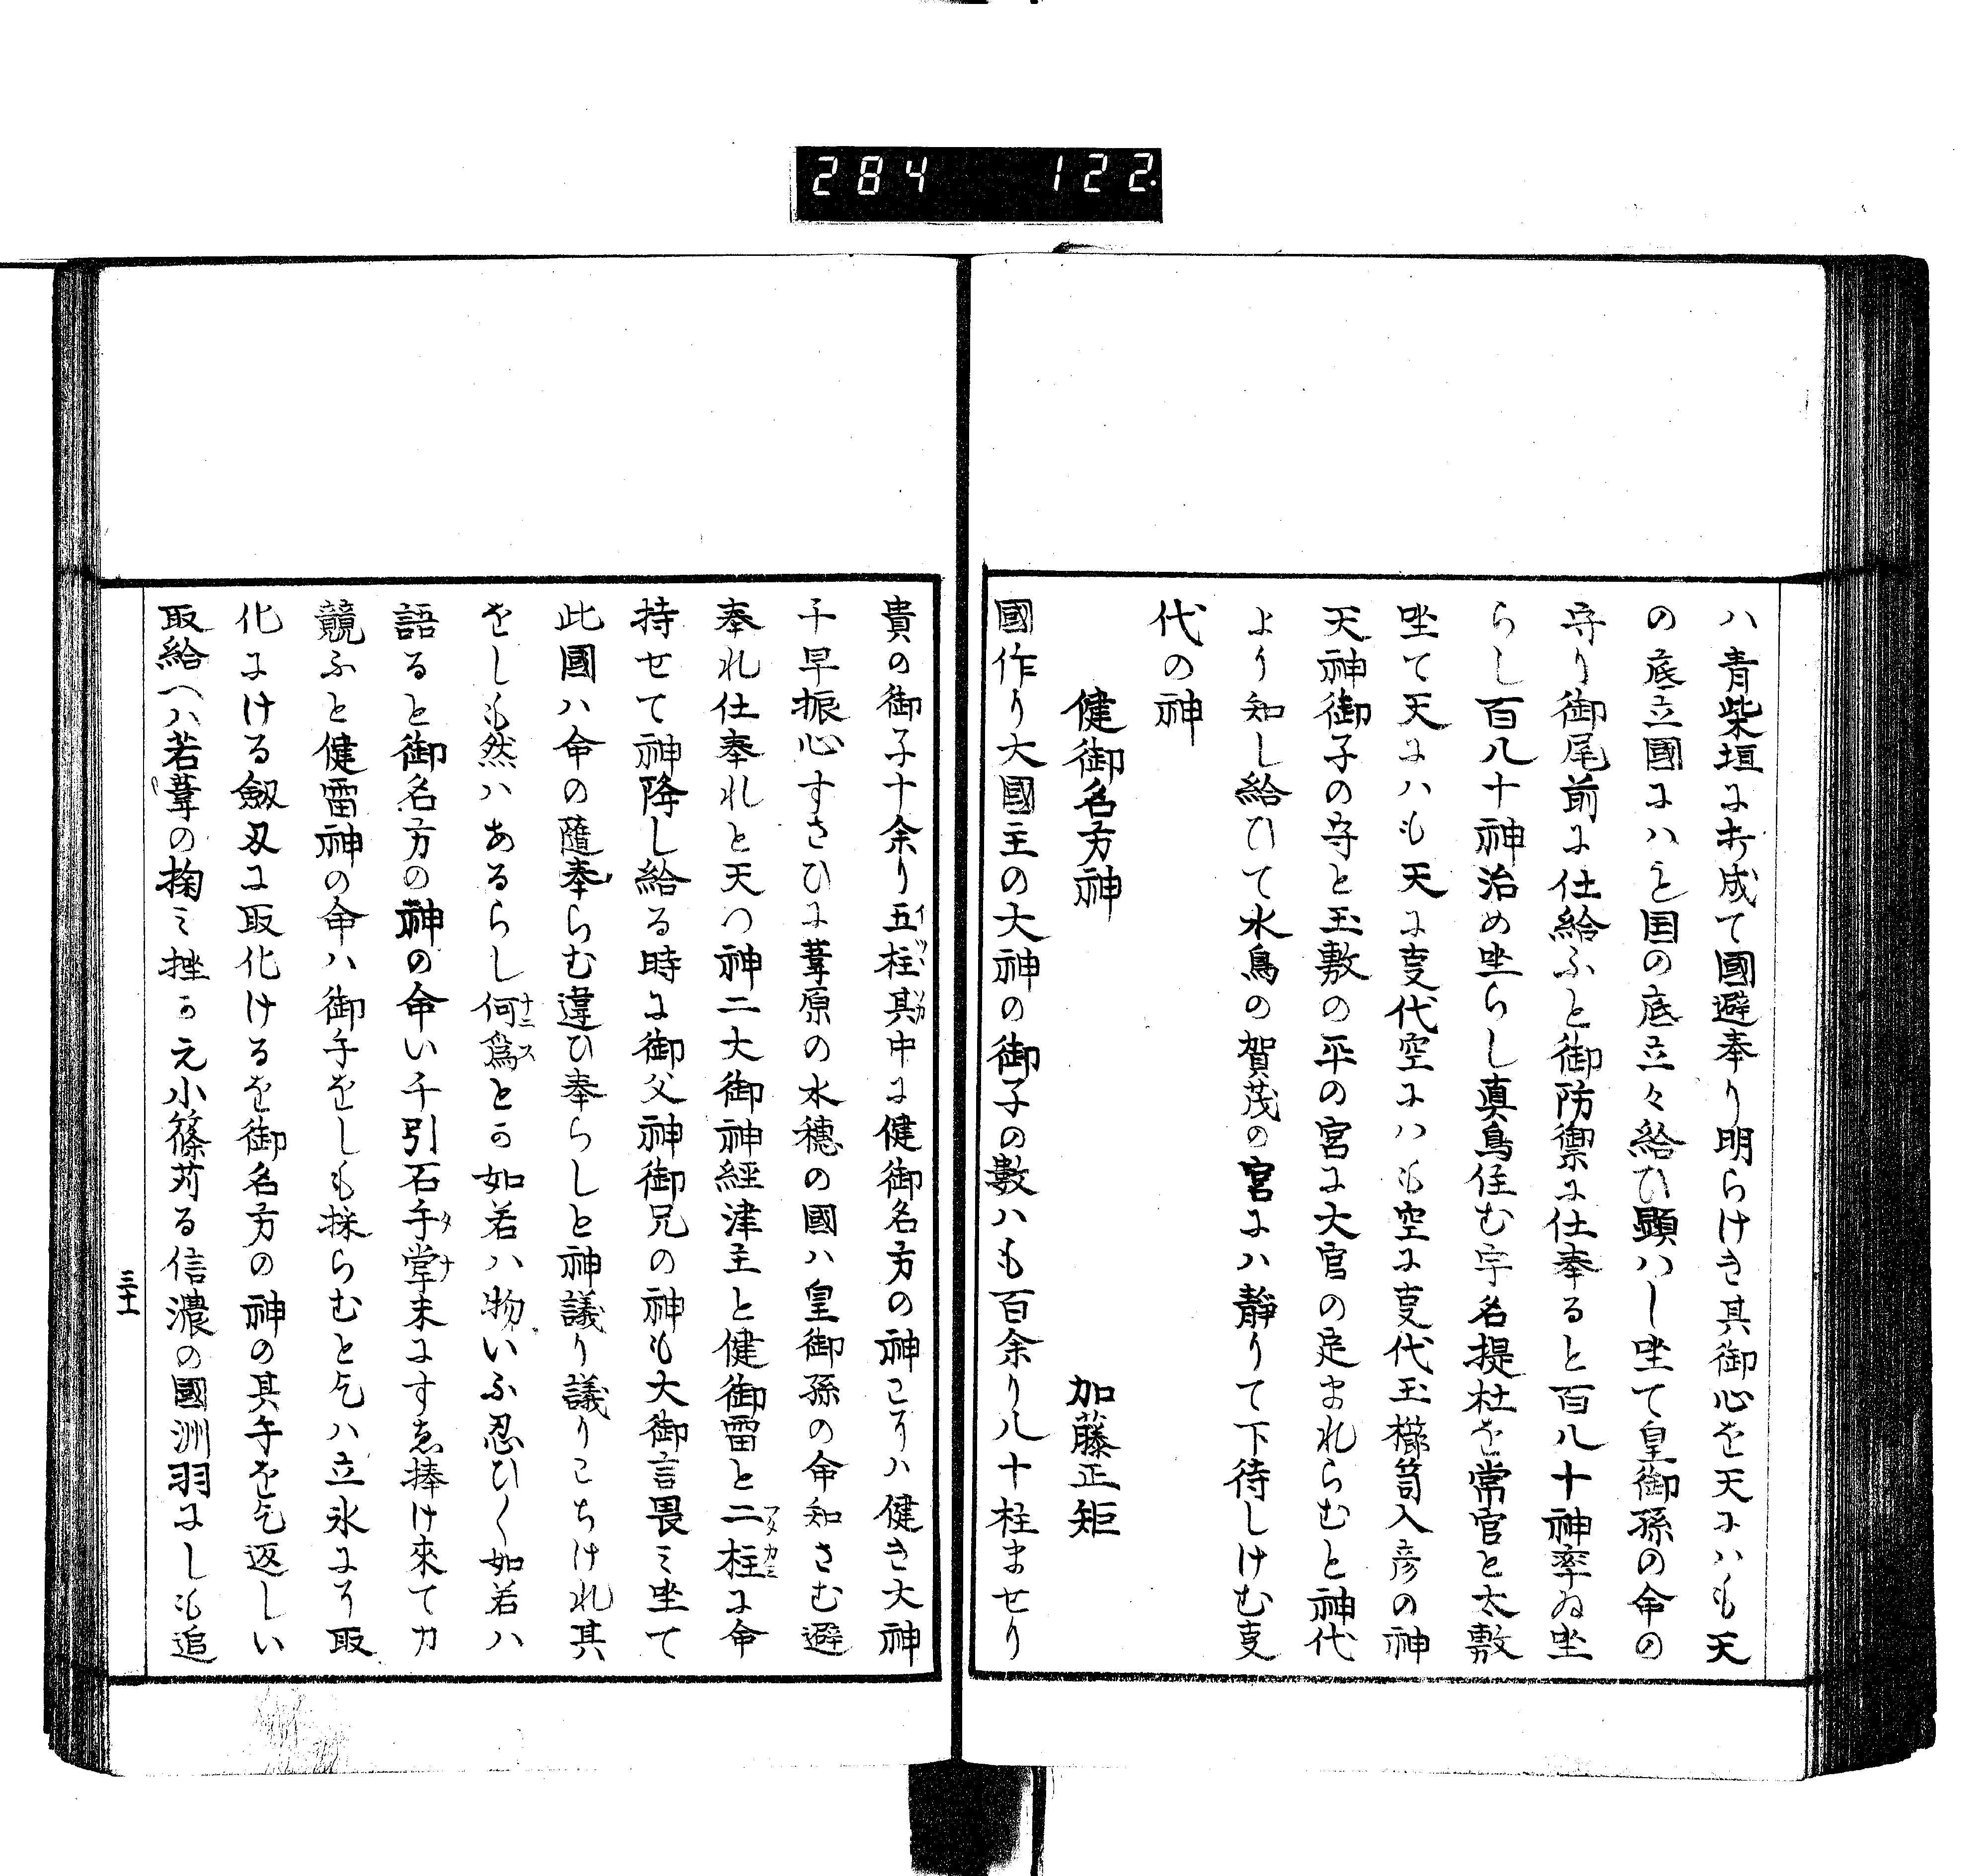 284 122.
ハ青柴垣に打成て國避奉り明らけき其御心を天にハも天
の底立國にハも国の底立々給ひ顕ハし坐て皇御孫の命の
守り御尾前に仕給ふと御防禦に仕奉ると百八十神率ゐ坐
らし百八十神治め坐らし真鳥住む宇名提杜を常宮と太敷
坐て天にハも天に事代空にハも空に事代玉櫛笥入彦の神
天神御子の守と玉敷の平の宮に大宮の足まれらむと神代
より知し給ひて水鳥の賀茂の宮にハ靜りて下待しけむ事
代の神
健御名方神 加藤正矩
國作り大國主の大神の御子の數ハも百余り八十柱ませり
貴の御子十余り五柱其中に健御名方の神こそハ健き大神
千早振心すさひに葦原の水穂の國ハ皇御孫の命知さむ避
奉れ仕奉れと天つ神二大御神經津主と健御雷と二柱に命
持せて神降し給る時に御父神御兄の神も大御言畏ミ坐て
此國ハ命の隨奉らむ違ひ奉らしと神議り議りこちけれ其
をしも然ハあるらし何爲とか如若ハ物いふ忍ひ〱如若ハ
語ると御名方の神の命い千引石手掌末にすゑ捧け來て力
競ふと健雷神の命ハ御手をしも採らむと乞ハ立氷にそ取
化にける劔刄に取化けるを御名方の神の其手を乞返しい
取給へハ若葦の掬ミ挫かえ小篠苅る信濃の國洲羽にしも追
三十